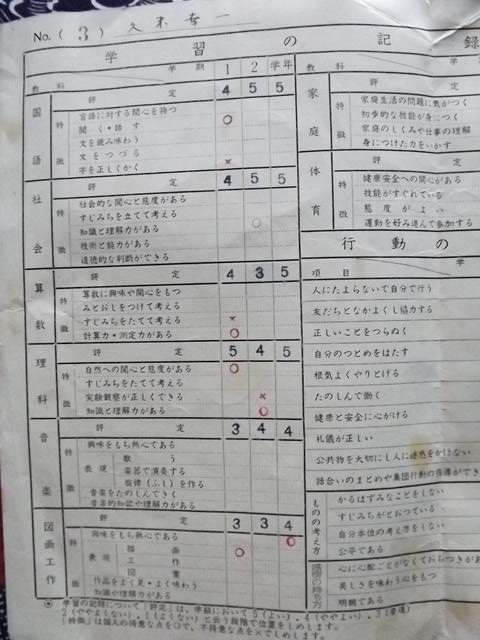 No.( 3 ) 久米 一
学習の記録
教科 学期 1 2 学年
国語 評定 4 5 5
特徴 言語に対する関心を持つ
聞く・話す ○
文を読み味わう
文をつづる
字を正しくかく ×
社会 評定 4 5 5
特徴 社会的な関心と態度がある
すじみちを立てて考える
知識と理解力がある ○
技術と能力がある
道徳的な判断ができる
算数 評定 4 3 5
特徴 算数に興味や関心をもつ
みとおしをつけて考える
すじみちをたてて考える ×
計算力・測定力がある ○
理科 評定 5 4 5
特徴 自然への関心と態度がある ○
すじみちをたてて考える
実験観察が正しくできる ×
知識と理解力がある ○
音楽 評定 3 4 4
特徴 興味をもち熱心である
表現 歌う
楽器で演奏する
旋律(ふし)を作る
音楽をたのしんできく
音楽的知識や理解力がある
図画工作 評定 3 3 4
特徴 興味をもち熱心である ○
表現 描画 ○
工作
図案
作品をよく見・よく味わう
知識と理解力がある
教科 学
家庭 評
特徴 家庭生活の問題に気がつく
初歩的な技能が身につく
家庭のしくみや仕事の理解
身につけた力をいかす
体育 評
特徴 健康安全への関心がある
技能がすぐれている
態度がよい
運動を好み進んで参加する
行動の
項目 学
人にたよらないで自分で行う
友だちとなかよくし協力する
正しいことをつらぬく
自分のつとめをはたす
根気よくやりとげる
たのしんで働く
健康と安全に心がける
礼儀が正しい
公共物を大切にし人に迷惑をかけない
話合いのまとめや集団行動の指導ができ
ものの考え方 かるはずみなことをしない
すじみちがとおっている
自分本位の考え方をしない
公平である
感情の持ち方 心に心配ごとがなくておちつきがあ
美しさを味わう心をもつ
明朗である
学習の記録について「評定」は、学級において5(よい)、4(ややよい)、3(普通)
2(ややよくない)、1(よくない)と云う段階で位置をしめします。
「特徴」は個人の得意な点を○で、不得意な点を×でしめします